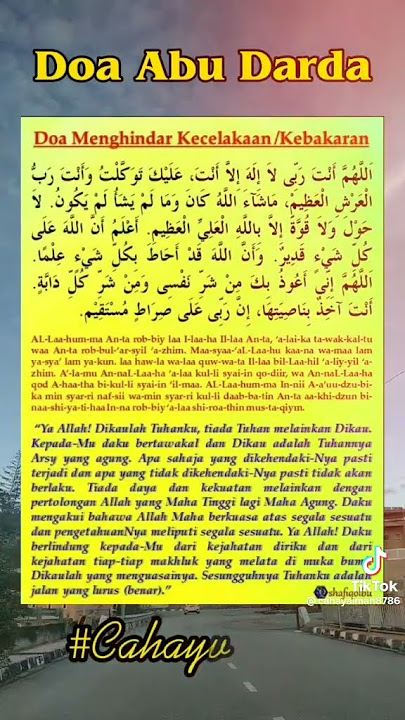 Doa Abu Darda
Doa Menghindar Kecelakaan/Kebakaran
اَللَّهُمَّ أَنْتَ رَبِّى لاَ إِلَهَ إِلاَّ أَنْتَ، عَلَيْكَ تَوَكَّلْتُ وَأَنْتَ رَبُّ
الْعَرْشِ الْعَظِيْمِ، مَاشَآءَ اللَّهُ كَانَ وَمَا لَمْ يَشَأْ لَمْ يَكُوْنُ. لاَ
حَوْلَ وَلاَ قُوَّةَ إِلاَّ بِاللَّهِ الْعَلِيِّ الْعَظِيْمِ. أَعْلَمُ أَنَّ اللَّهَ عَلَى
كُلِّ شَيْءٍ قَدِيْرٌ. وَأَنَّ اللَّهَ قَدْ أَحَاطَ بِكُلِّ شَيْءٍ عِلْمًا.
اَللَّهُمَّ إِنِّي أَعُوْذُ بِكَ مِنْ شَرِّ نَفْسِى وَمِنْ شَرِّ كُلِّ دَآبَّةٍ.
أَنْتَ آخِذٌ بِنَاصِيَتِهَا، إِنَّ رَبِّى عَلَى صِرَاطٍ مُسْتَقِيْمٍ.
AL-Laa-hum-ma An-ta rob-biy laa I-laa-ha Il-laa An-ta, 'a-lai-ka ta-wak-kal-tu
waa An-ta rob-bul-'ar-syil 'a-zhim. Maa-syaa-'aL-Laa-hu kaa-na wa-maa lam
ya-sya' lam ya-kun. laa haw-la wa-laa quw-wa-ta Il-laa bil-Laa-hil 'a-liy-yil 'a-
zhim. A'-la-mu An-naL-Laa-ha 'a-laa kul-li syai-in qo-diir, wa An-naL-Laa-ha
qod A-haa-tha bi-kul-li syai-in 'il-maa. AL-Laa-hum-ma In-nii A-a'uu-dzu-bi-
ka min syar-ri naf-sii wa-min syar-ri kul-li daab-ba-tin An-ta aa-khi-dzun bi-
naa-shi-ya-ti-haa In-na rob-biy 'a-laa shi-roa-thin mus-ta-qiym.
"Ya Allah! Dikaulah Tuhanku, tiada Tuhan melainkan Dikau.
Kepada-Mu daku bertawakal dan Dikau adalah Tuhannya
Arsy yang agung. Apa sahaja yang dikehendaki-Nya pasti
terjadi dan apa yang tidak dikehendaki-Nya pasti tidak akan
berlaku. Tiada daya dan kekuatan melainkan dengan
pertolongan Allah yang Maha Tinggi lagi Maha Agung. Daku
mengakui bahawa Allah Maha berkuasa atas segala sesuatu
dan pengetahuanNya meliputi segala sesuatu. Ya Allah! Daku
berlindung kepada-Mu dari kejahatan diriku dan dari
kejahatan tiap-tiap makhluk yang melata di muka bumi
Dikaulah yang menguasainya. Sesungguhnya Tuhanku adalah
jalan yang lurus (benar)."
shafiqolbu
TikTok
#Cahay